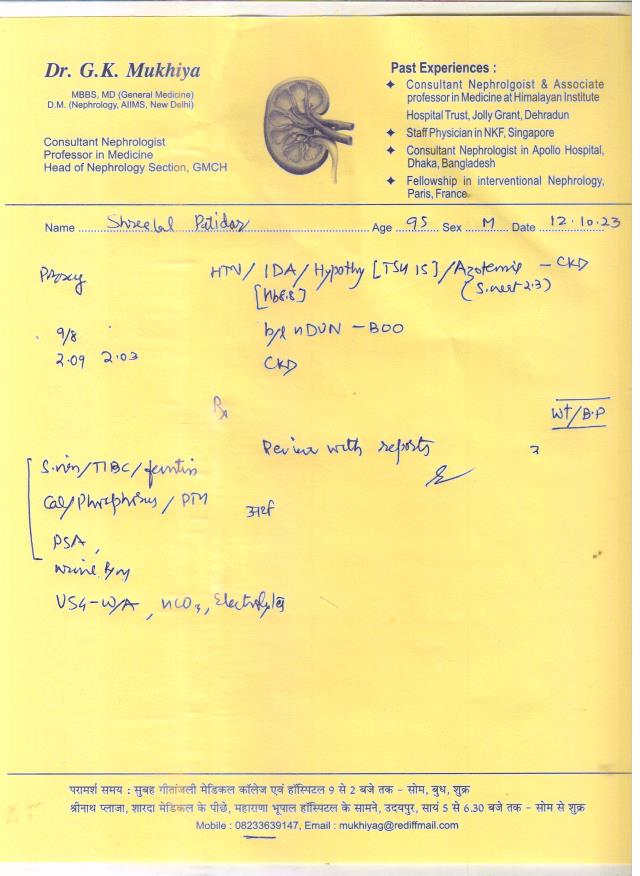 Dr. G.K. Mukhiya
MBBS, MD (General Medicine)
D.M. (Nephrology, AIIMS, New Delhi)
Consultant Nephrologist
Professor in Medicine
Head of Nephrology Section, GMCH
Past Experiences :
✦ Consultant Nephrolgoist & Associate
professor in Medicine at Himalayan Institute
Hospital Trust, Jolly Grant, Dehradun
✦ Staff Physician in NKF, Singapore
✦ Consultant Nephrologist in Apollo Hospital,
Dhaka, Bangladesh
✦ Fellowship in interventional Nephrology,
Paris, France
Name Shreelal Patidar Age 95 Sex M Date 12.10.23
Proxy HTN / IDA / Hypothy [TSH 15] / Azotemia - CKD
[Hb 8.8] (S. 2.3)
9/8 b/l HDUN - BOO
2.09 2.03 CKD
Rx
Wt/B.P
Review with reports
S. iron/TIBC/ferritin
Cal/Phosphorus / PTH
PSA,
urine
USG-W/A, HCO3, Electrolytes
परामर्श समय : सुबह गीतांजली मेडिकल कॉलेज एवं हॉस्पिटल 9 से 2 बजे तक - सोम, बुध, शुक्र
श्रीनाथ प्लाजा, शारदा मेडिकल के पीछे, महाराणा भूपाल हॉस्पिटल के सामने, उदयपुर, सायं 5 से 6.30 बजे तक - सोम से शुक्र
Mobile : 08233639147, Email : mukhiyag@rediffmail.com